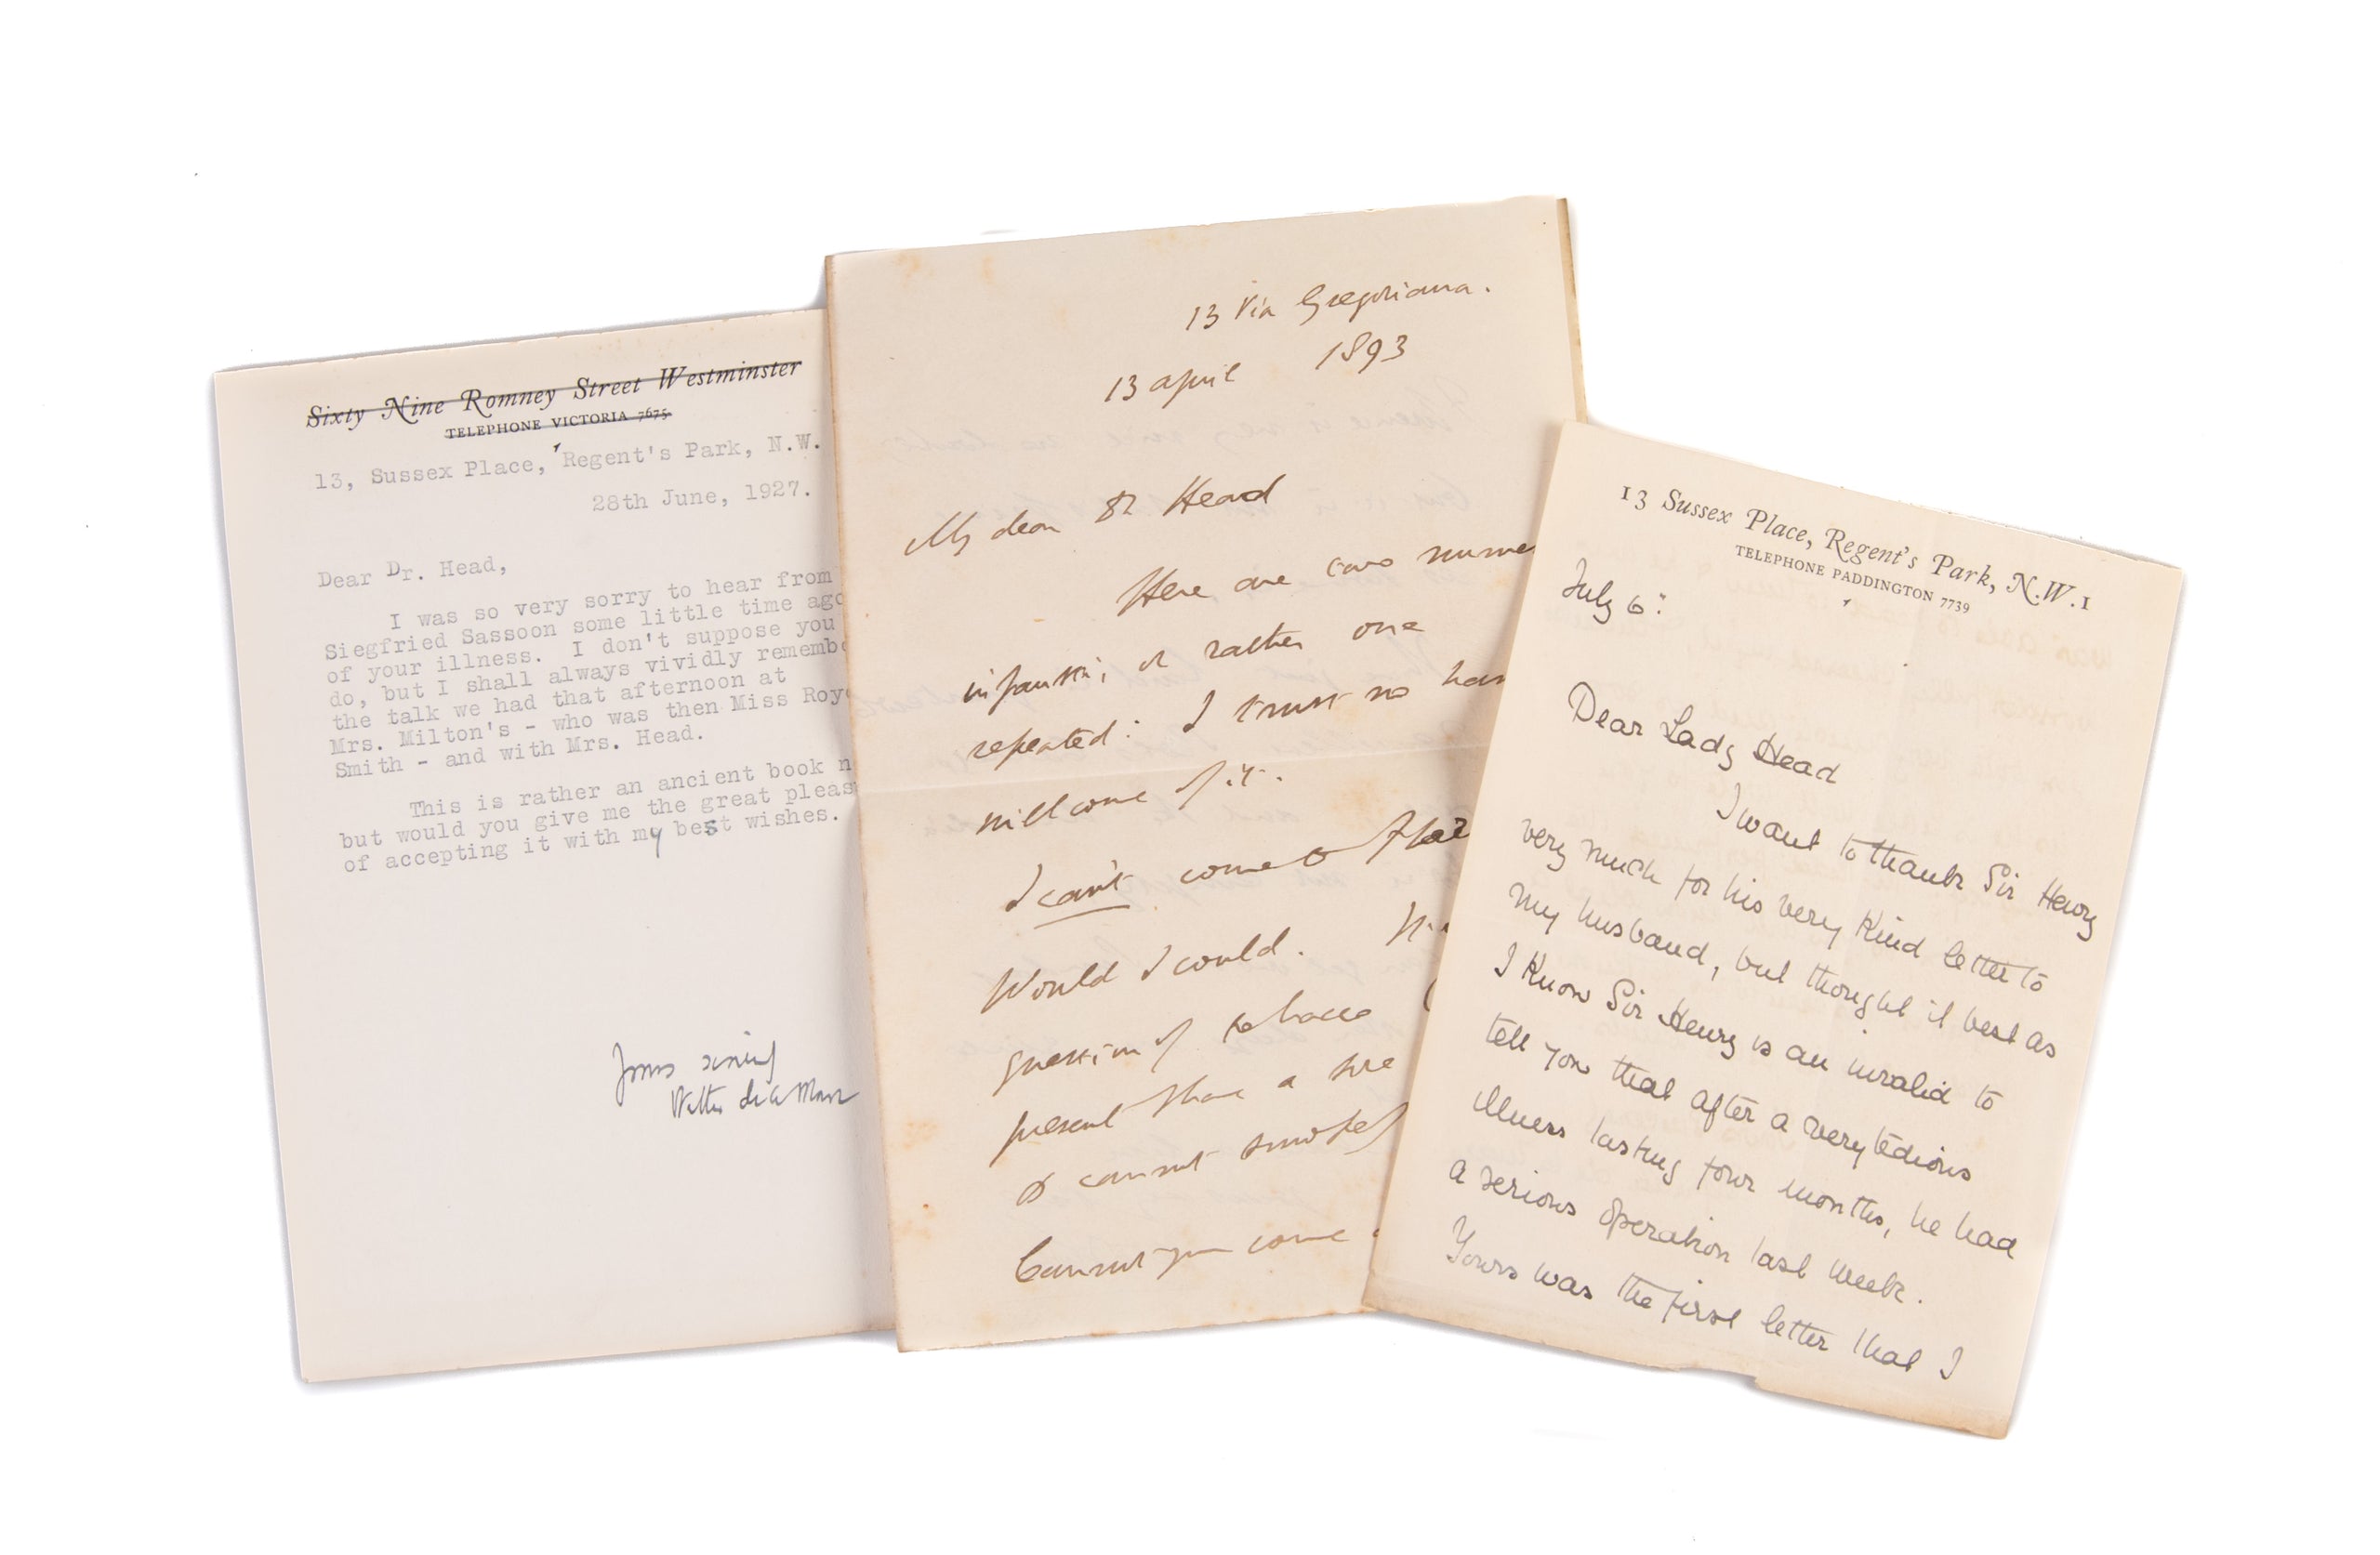 Sixty Nine Romney Street Westminster
TELEPHONE VICTORIA 7675.
13, Sussex Place, Regent's Park, N.W.
28th June, 1927.
Dear Dr. Head,
I was so very sorry to hear from
Siegfried Sassoon some little time ago
of your illness. I don't suppose you
do, but I shall always vividly rememb
the talk we had that afternoon at
Mrs. Milton's - who was then Miss Roy
Smith - and with Mrs. Head.
This is rather an ancient book n
but would you give me the great pleas
of accepting it with my best wishes.
Yours
Walter de la Mare
13 Via Gregoriana.
13 april 1893
My dear Dr Head
Here are two
or rather one
repeated: I trust no har
will come of it.
I can't come to
Would I could.
question of tobacco
present I have a
& cannot smoke
Cannot you come
13 Sussex Place, Regent's Park, N.W.1
TELEPHONE PADDINGTON 7739
July 6:
Dear Lady Head
I want to thank Sir Henry
very much for his very kind letter to
my husband, but thought it best as
I know Sir Henry is an invalid to
tell you that after a very tedious
illness lasting four months, he had
a serious operation last week.
Yours was the first letter that I